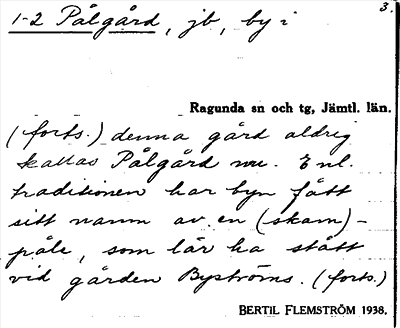 3.
1-2 Pålgård, jb, by i
Ragunda sn och tg, Jämtl. län.
(forts.) denna gård aldrig
kallas Pålgård nu. Enl.
traditionen har byn fått
sitt namn av en (skam)-
påle, som lär ha stått
vid gården Byströms. (forts.)
BERTIL FLEMSTRÖM 1938.